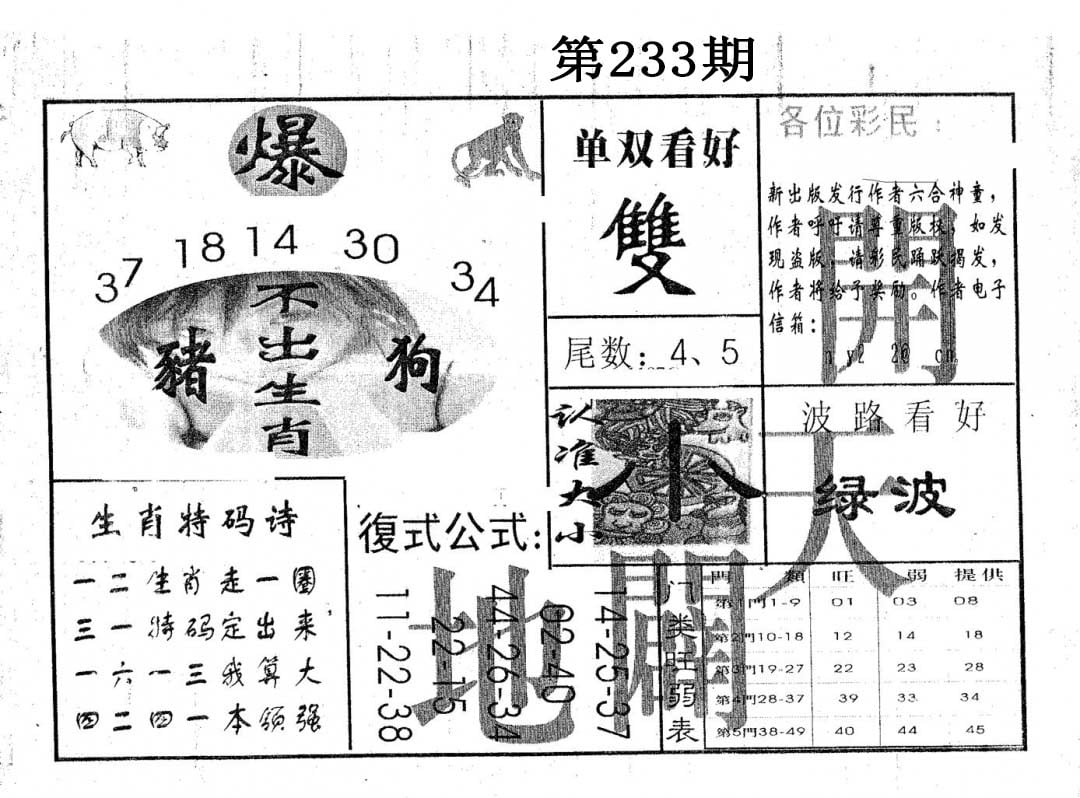 第233期
爆
37 18 14 30 34
不出生肖
豬
狗
单双看好
雙
尾数：4、5
各位彩民：
新出版发行作者六合神童，
作者呼吁请尊重版权，如发
现盗版，请彩民踊跃揭发，
作者将给予奖励。作者电子
信箱：
開
认准大小
小
波路看好
绿波
天
生肖特码诗
一二生肖走一圈
三一特码定出来，
一六一三我算大
四二四一本领强
復式公式：
11-22-38
22-15
44-26-34
02-40
14-25-37
地
開
八类旺弱表
門類 旺 弱 提供
第1門1-9 01 03 08
第2門10-18 12 14 18
第3門19-27 22 23 28
第4門28-37 39 33 34
第5門38-49 40 44 45